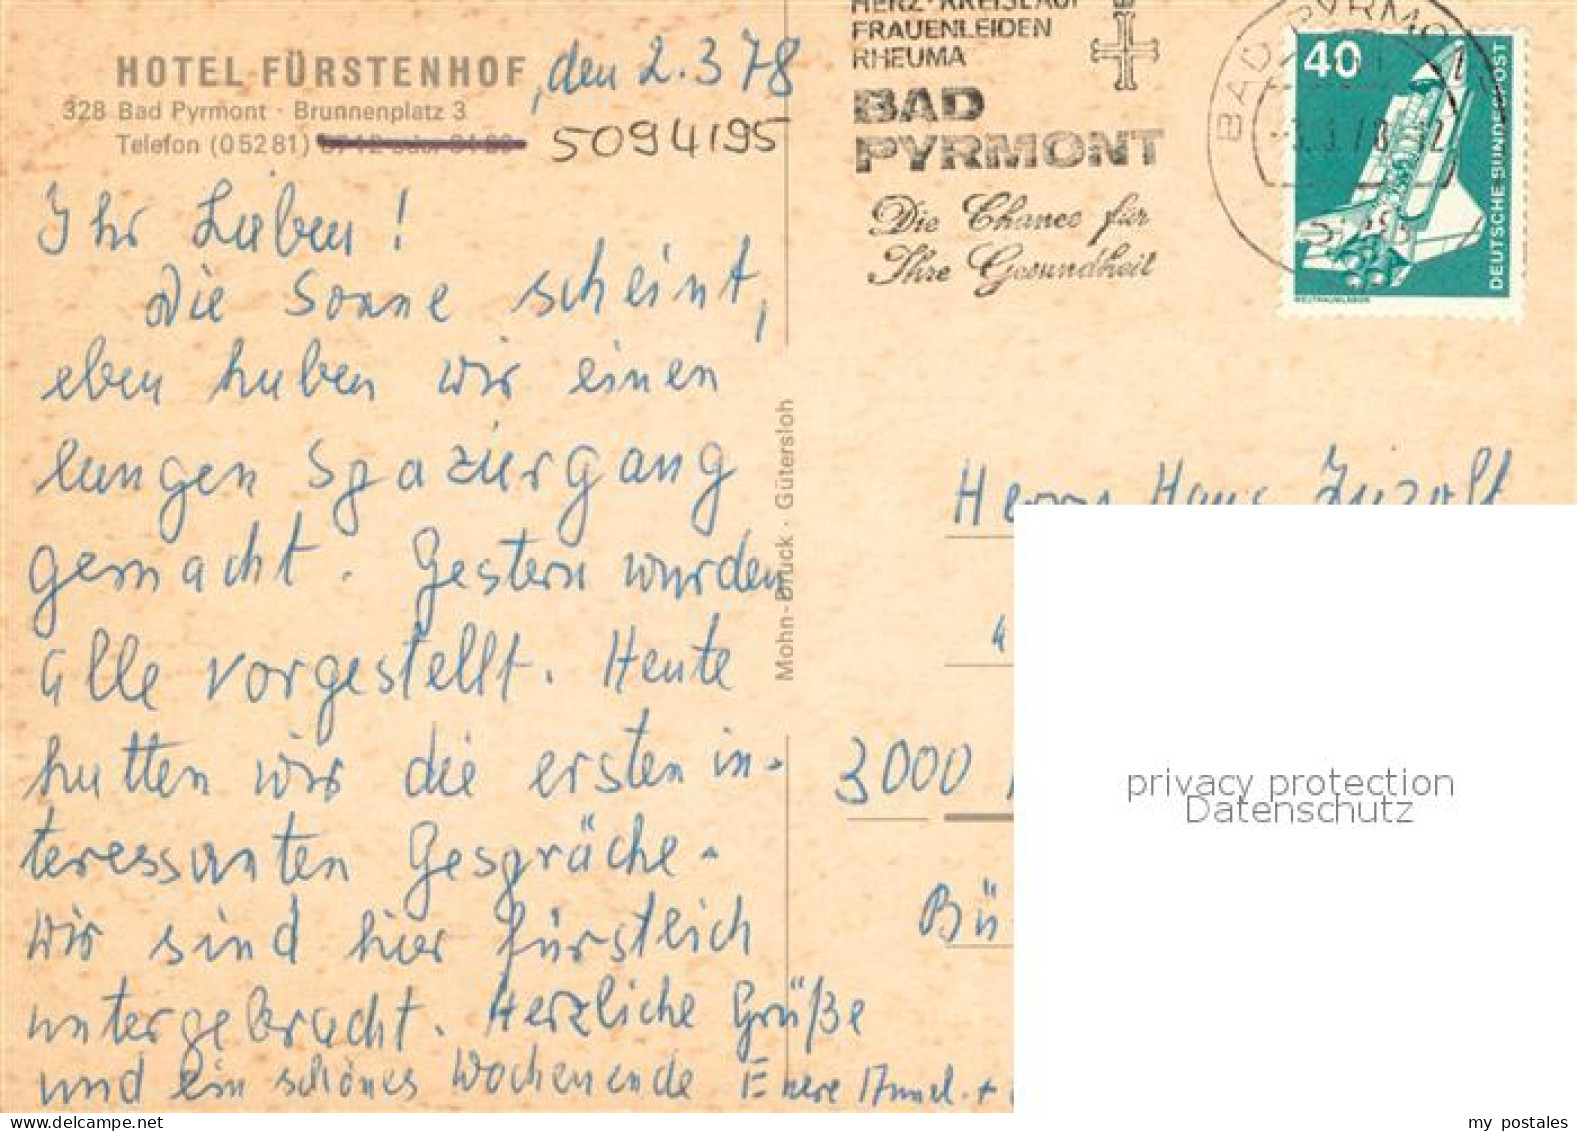 HOTEL FÜRSTENHOF, den 2.3 78
328 Bad Pyrmont · Brunnenplatz 3
Telefon (05281) 5094195
Ihr Lieben!
Die Sonne scheint,
eben haben wir einen
langen Spaziergang
gemacht. Gestern wurden
alle vorgestellt. Heute
hatten wir die ersten in-
teressanten Gespräche.
Wir sind hier fürstlich
untergebracht. Herzliche Grüße
und ein schönes Wochenende Euere
Mohn-Druck · Gütersloh
HERZ-KREISLAUF
FRAUENLEIDEN
RHEUMA
BAD
PYRMONT
Die Chance für
Ihre Gesundheit
BAD PYRMONT
40
DEUTSCHE BUNDESPOST
WELTRAUMLABOR
Herrn Hans
3000
Bü
privacy protection
Datenschutz
my postales